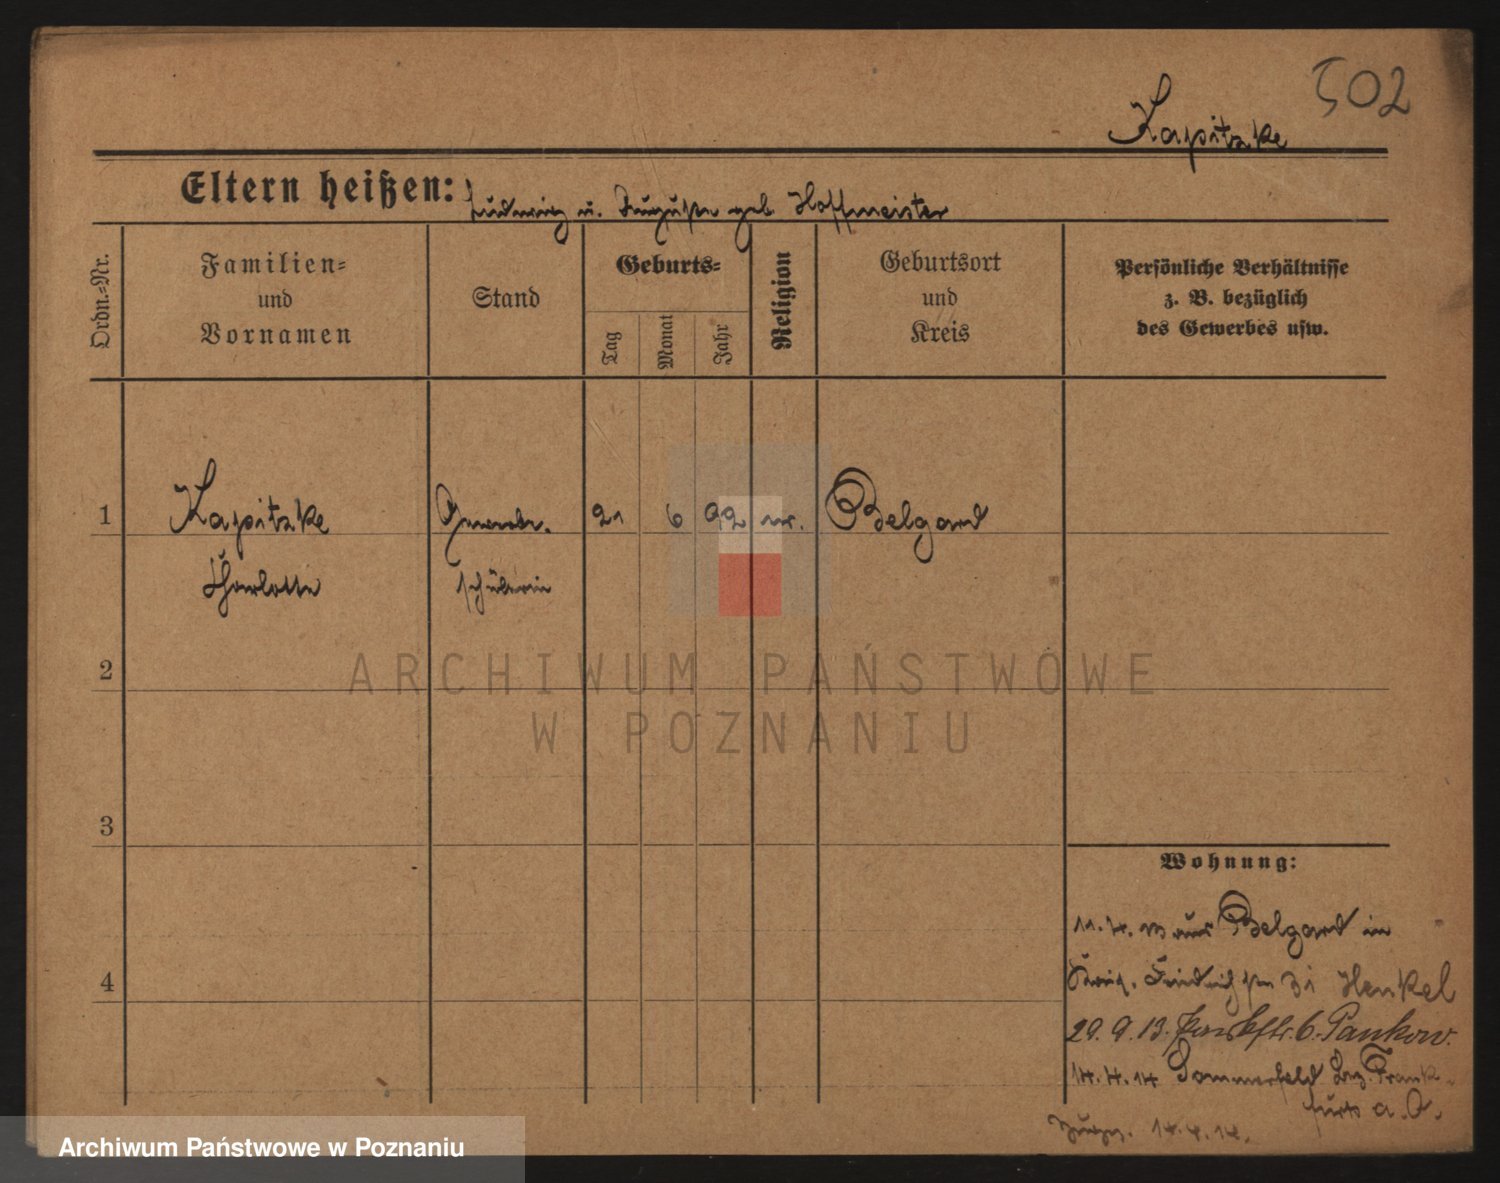 502
Kapitzke
Eltern heißen: Ludwig u. Auguste geb. Hoffmeister
Ordn.-Nr.
Familien-
und
Vornamen
Stand
Geburts-
Tag
Monat
Jahr
Religion
Geburtsort
und
Kreis
Persönliche Verhältnisse
z. B. bezüglich
des Gewerbes usw.
1 Kapitzke Gewerbe- 21 6 92 ev. Belgard
Charlotte schülerin
2
ARCHIWUM PAŃSTWOWE
W POZNANIU
3
Wohnung:
11.4.13 aus Belgard in
4
Friedrichstr 31 Henkel
29.9.13. Parkstr. 6. Pankow.
14.4.14 Sommerfeld Bez. Frank-
furt a. O.
14.4.14.
Archiwum Państwowe w Poznaniu